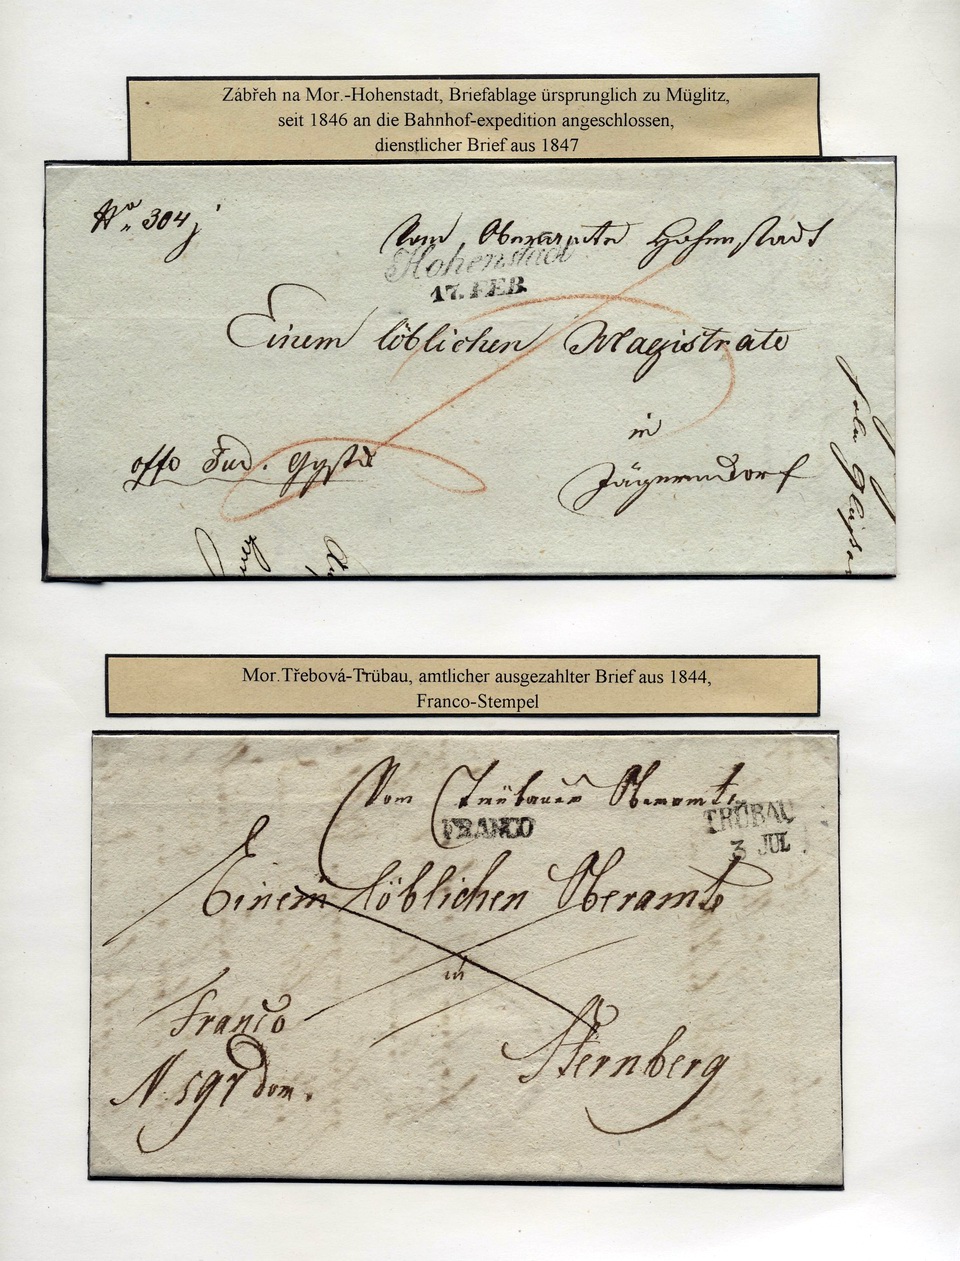 Zábřeh na Mor.-Hohenstadt, Briefablage ürsprunglich zu Müglitz,
seit 1846 an die Bahnhof-expedition angeschlossen,
dienstlicher Brief aus 1847
No. 304
Vom Oberamte Hohenstadt
Hohenstadt
17. FEB.
Einem löblichen Magistrate
in
offo Jud.
Jägerndorf
Mor.Třebová-Trübau, amtlicher ausgezahlter Brief aus 1844,
Franco-Stempel
Vom Trübauer Oberamte
FRANCO
TRÜBAU
3 JUL
Einem löblichen Oberamte
in
Franco
Sternberg
N. 597 dom.